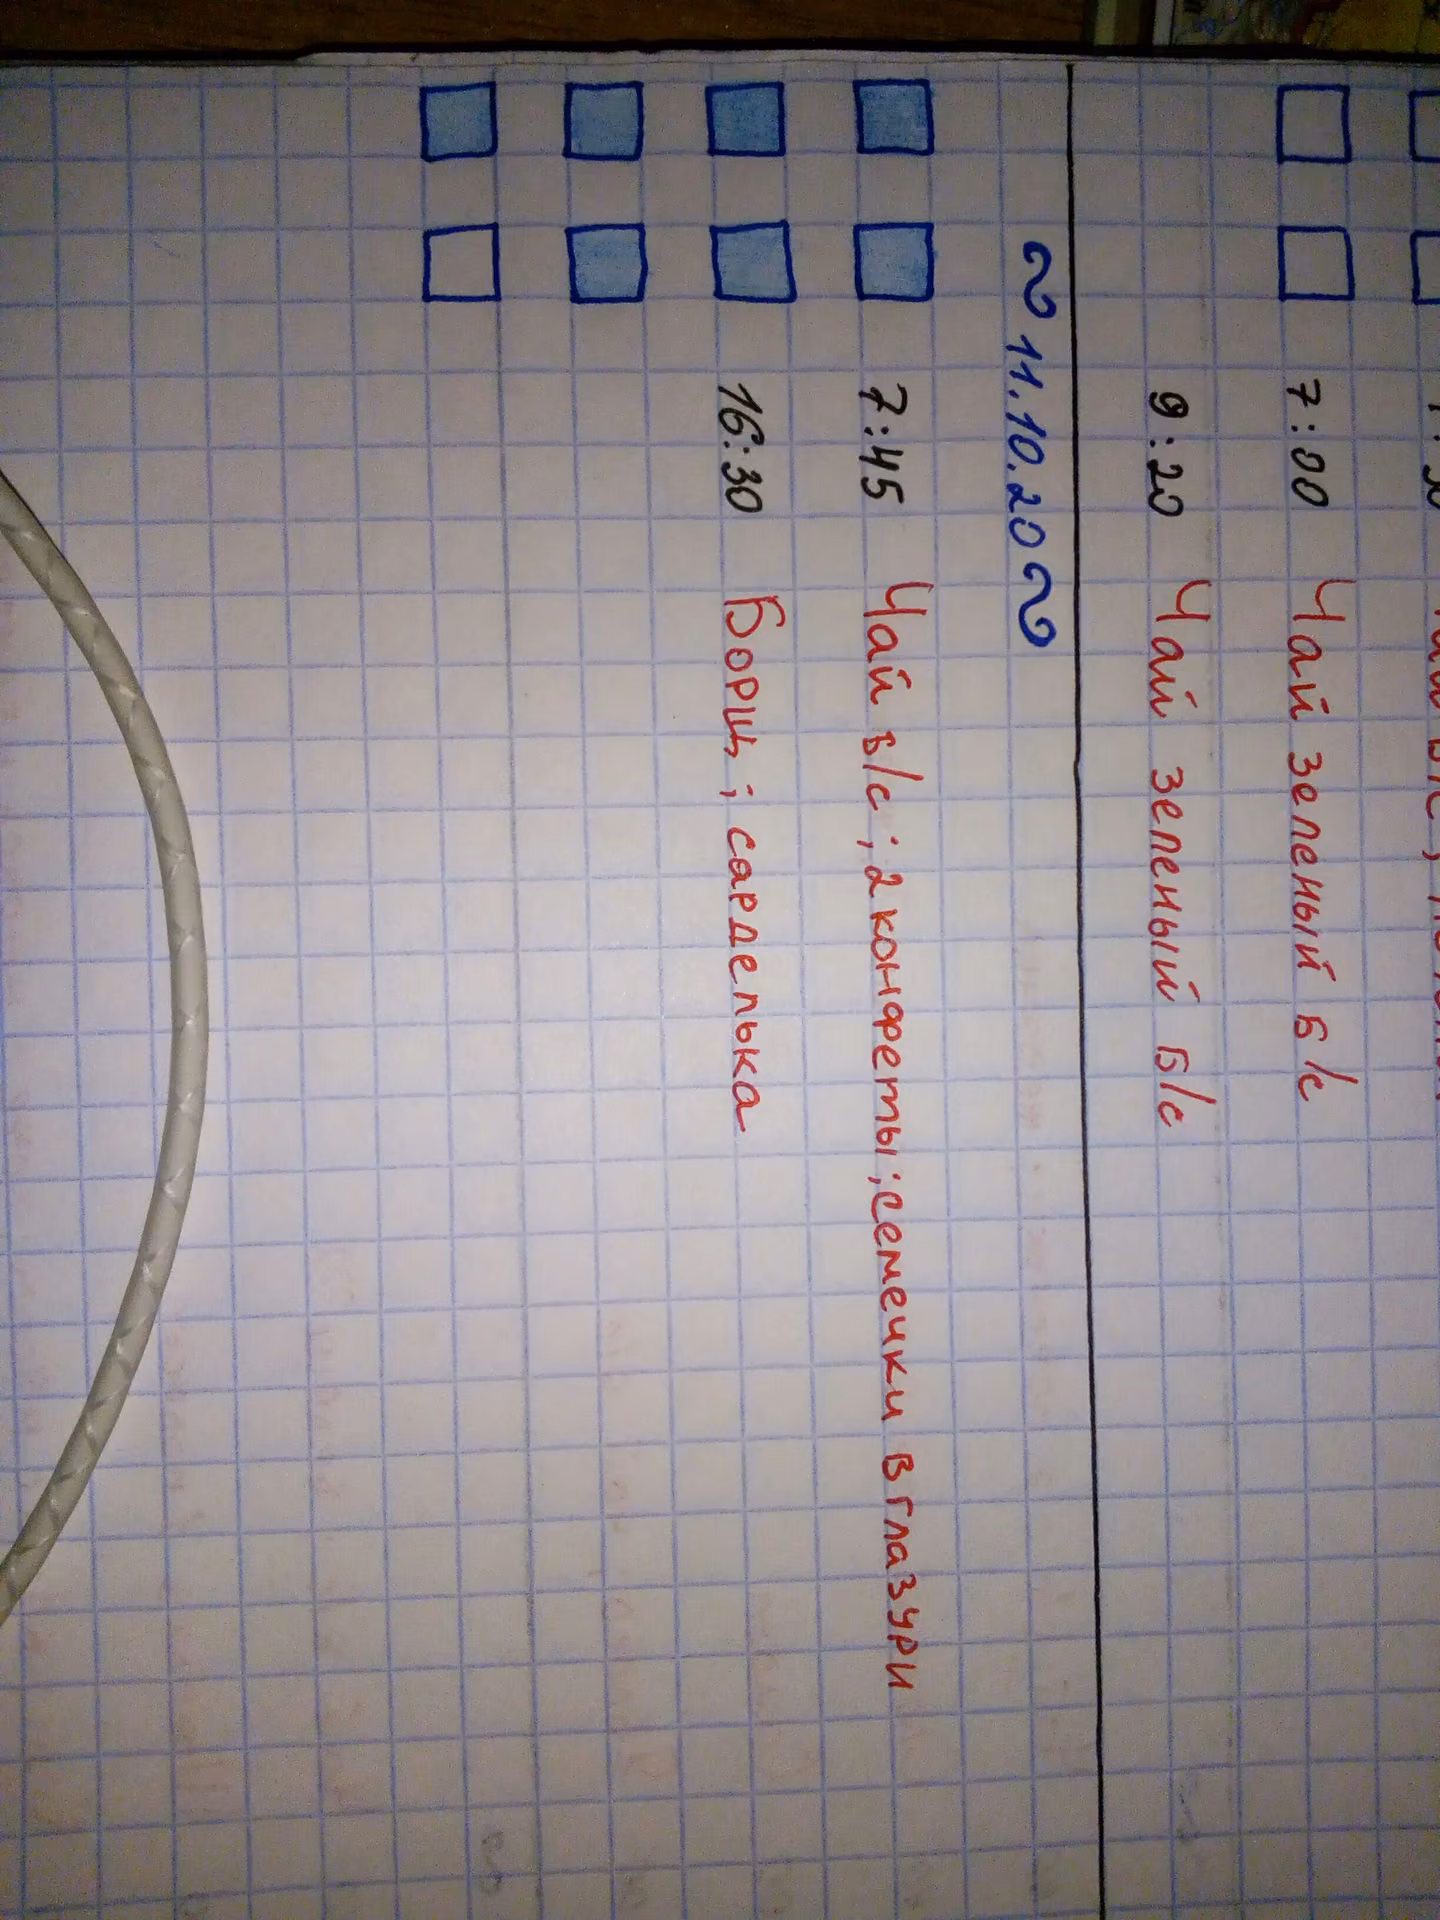 7:00 Чай зеленый б/с
9:20 Чай зеленый б/с
~ 11.10.20 ~
7:45 Чай в/с; 2 конфеты; семечки в глазури
16:30 Борщ; сарделька